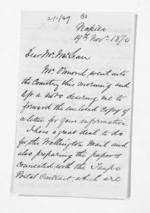 Napier
19th Novr. 1870
Dear Mr. McLean
Mr. Ormond went into
the Country this morning and
left a note desiring me to
forward the enclosed copy of
a letter for your information.
I have a great deal to do
for the Wellington Mail and
also preparing the papers
connected with the Taupo
Postal Contract, which are